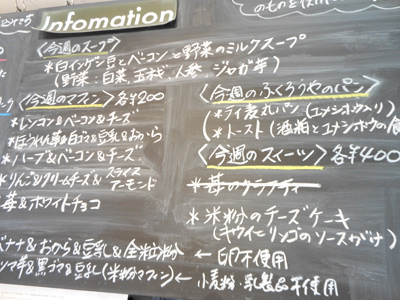 Infomation
のものを使用
<今週のスープ>
*白インゲン豆とベーコンと野菜のミルクスープ
(野菜:白菜、玉ネギ、人参、ジャガ芋)
<今週のマフィン> 各¥200
*レンコン&ベーコン&チーズ
*ほうれん草&白ゴマ&豆乳&おから
*ハーブ&ベーコン&チーズ
*りんご&クリームチーズ&スライスアーモンド
苺&ホワイトチョコ
バナナ&おから&豆乳&全粒粉 ← 卵不使用
ツマ芋&黒ゴマ&豆乳(米粉マフィン) ← 小麦粉、乳製品不使用
<今週のふくろうやのパン>
*ライ麦丸パン(ユメシホウ入り)
*トースト(酒粕とユメシホウの食
<今週のスイーツ> 各¥400
*苺のクラフティ
*米粉のチーズケーキ
(キウイとリンゴのソースがけ)